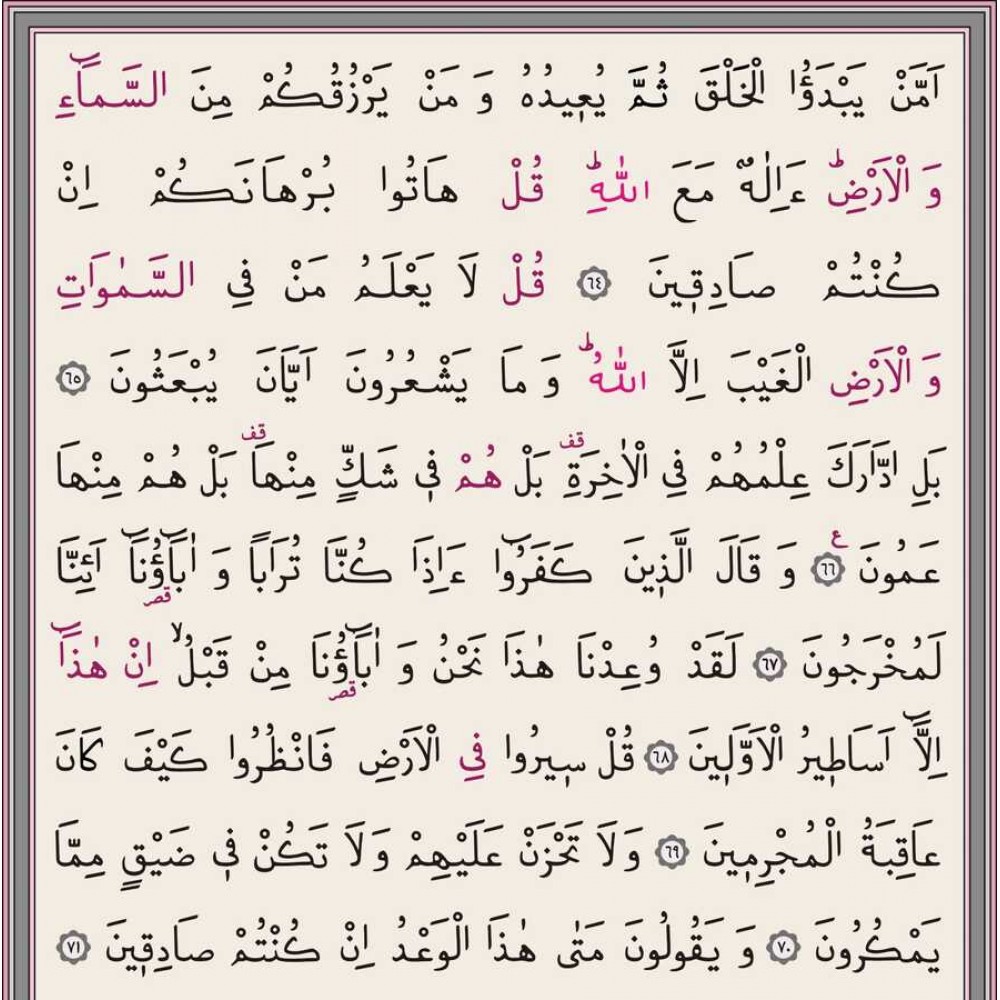 اَمَّنْ يَبْدَؤُا الْخَلْقَ ثُمَّ يُعٖيدُهُ وَ مَنْ يَرْزُقُكُمْ مِنَ السَّمَٓاءِ
وَ الْاَرْضِؕ ءَاِلٰهٌ مَعَ اللّٰهِؕ قُلْ هَاتُوا بُرْهَانَكُمْ اِنْ
كُنْتُمْ صَادِقٖينَ ﴿٦٤﴾ قُلْ لَا يَعْلَمُ مَنْ فِى السَّمٰوَاتِ
وَ الْاَرْضِ الْغَيْبَ اِلَّا اللّٰهُؕ وَ مَا يَشْعُرُونَ اَيَّانَ يُبْعَثُونَ ﴿٦٥﴾
بَلِ ادَّارَكَ عِلْمُهُمْ فِى الْاٰخِرَةِ قف بَلْ هُمْ فٖى شَكٍّ مِنْهَا قف بَلْ هُمْ مِنْهَا
عَمُونَ ع ﴿٦٦﴾ وَ قَالَ الَّذٖينَ كَفَرُٓوا ءَاِذَا كُنَّا تُرَابًا وَ اٰبَٓاؤُنَٓا قصر اَئِنَّا
لَمُخْرَجُونَ ﴿٦٧﴾ لَقَدْ وُعِدْنَا هٰذَا نَحْنُ وَ اٰبَٓاؤُنَا قصر مِنْ قَبْلُۙ اِنْ هٰذَٓا
اِلَّٓا اَسَاطٖيرُ الْاَوَّلٖينَ ﴿٦٨﴾ قُلْ سٖيرُوا فِى الْاَرْضِ فَانْظُرُوا كَيْفَ كَانَ
عَاقِبَةُ الْمُجْرِمٖينَ ﴿٦٩﴾ وَلَا تَحْزَنْ عَلَيْهِمْ وَلَا تَكُنْ فٖى ضَيْقٍ مِمَّا
يَمْكُرُونَ ﴿٧٠﴾ وَ يَقُولُونَ مَتٰى هٰذَا الْوَعْدُ اِنْ كُنْتُمْ صَادِقٖينَ ﴿٧١﴾